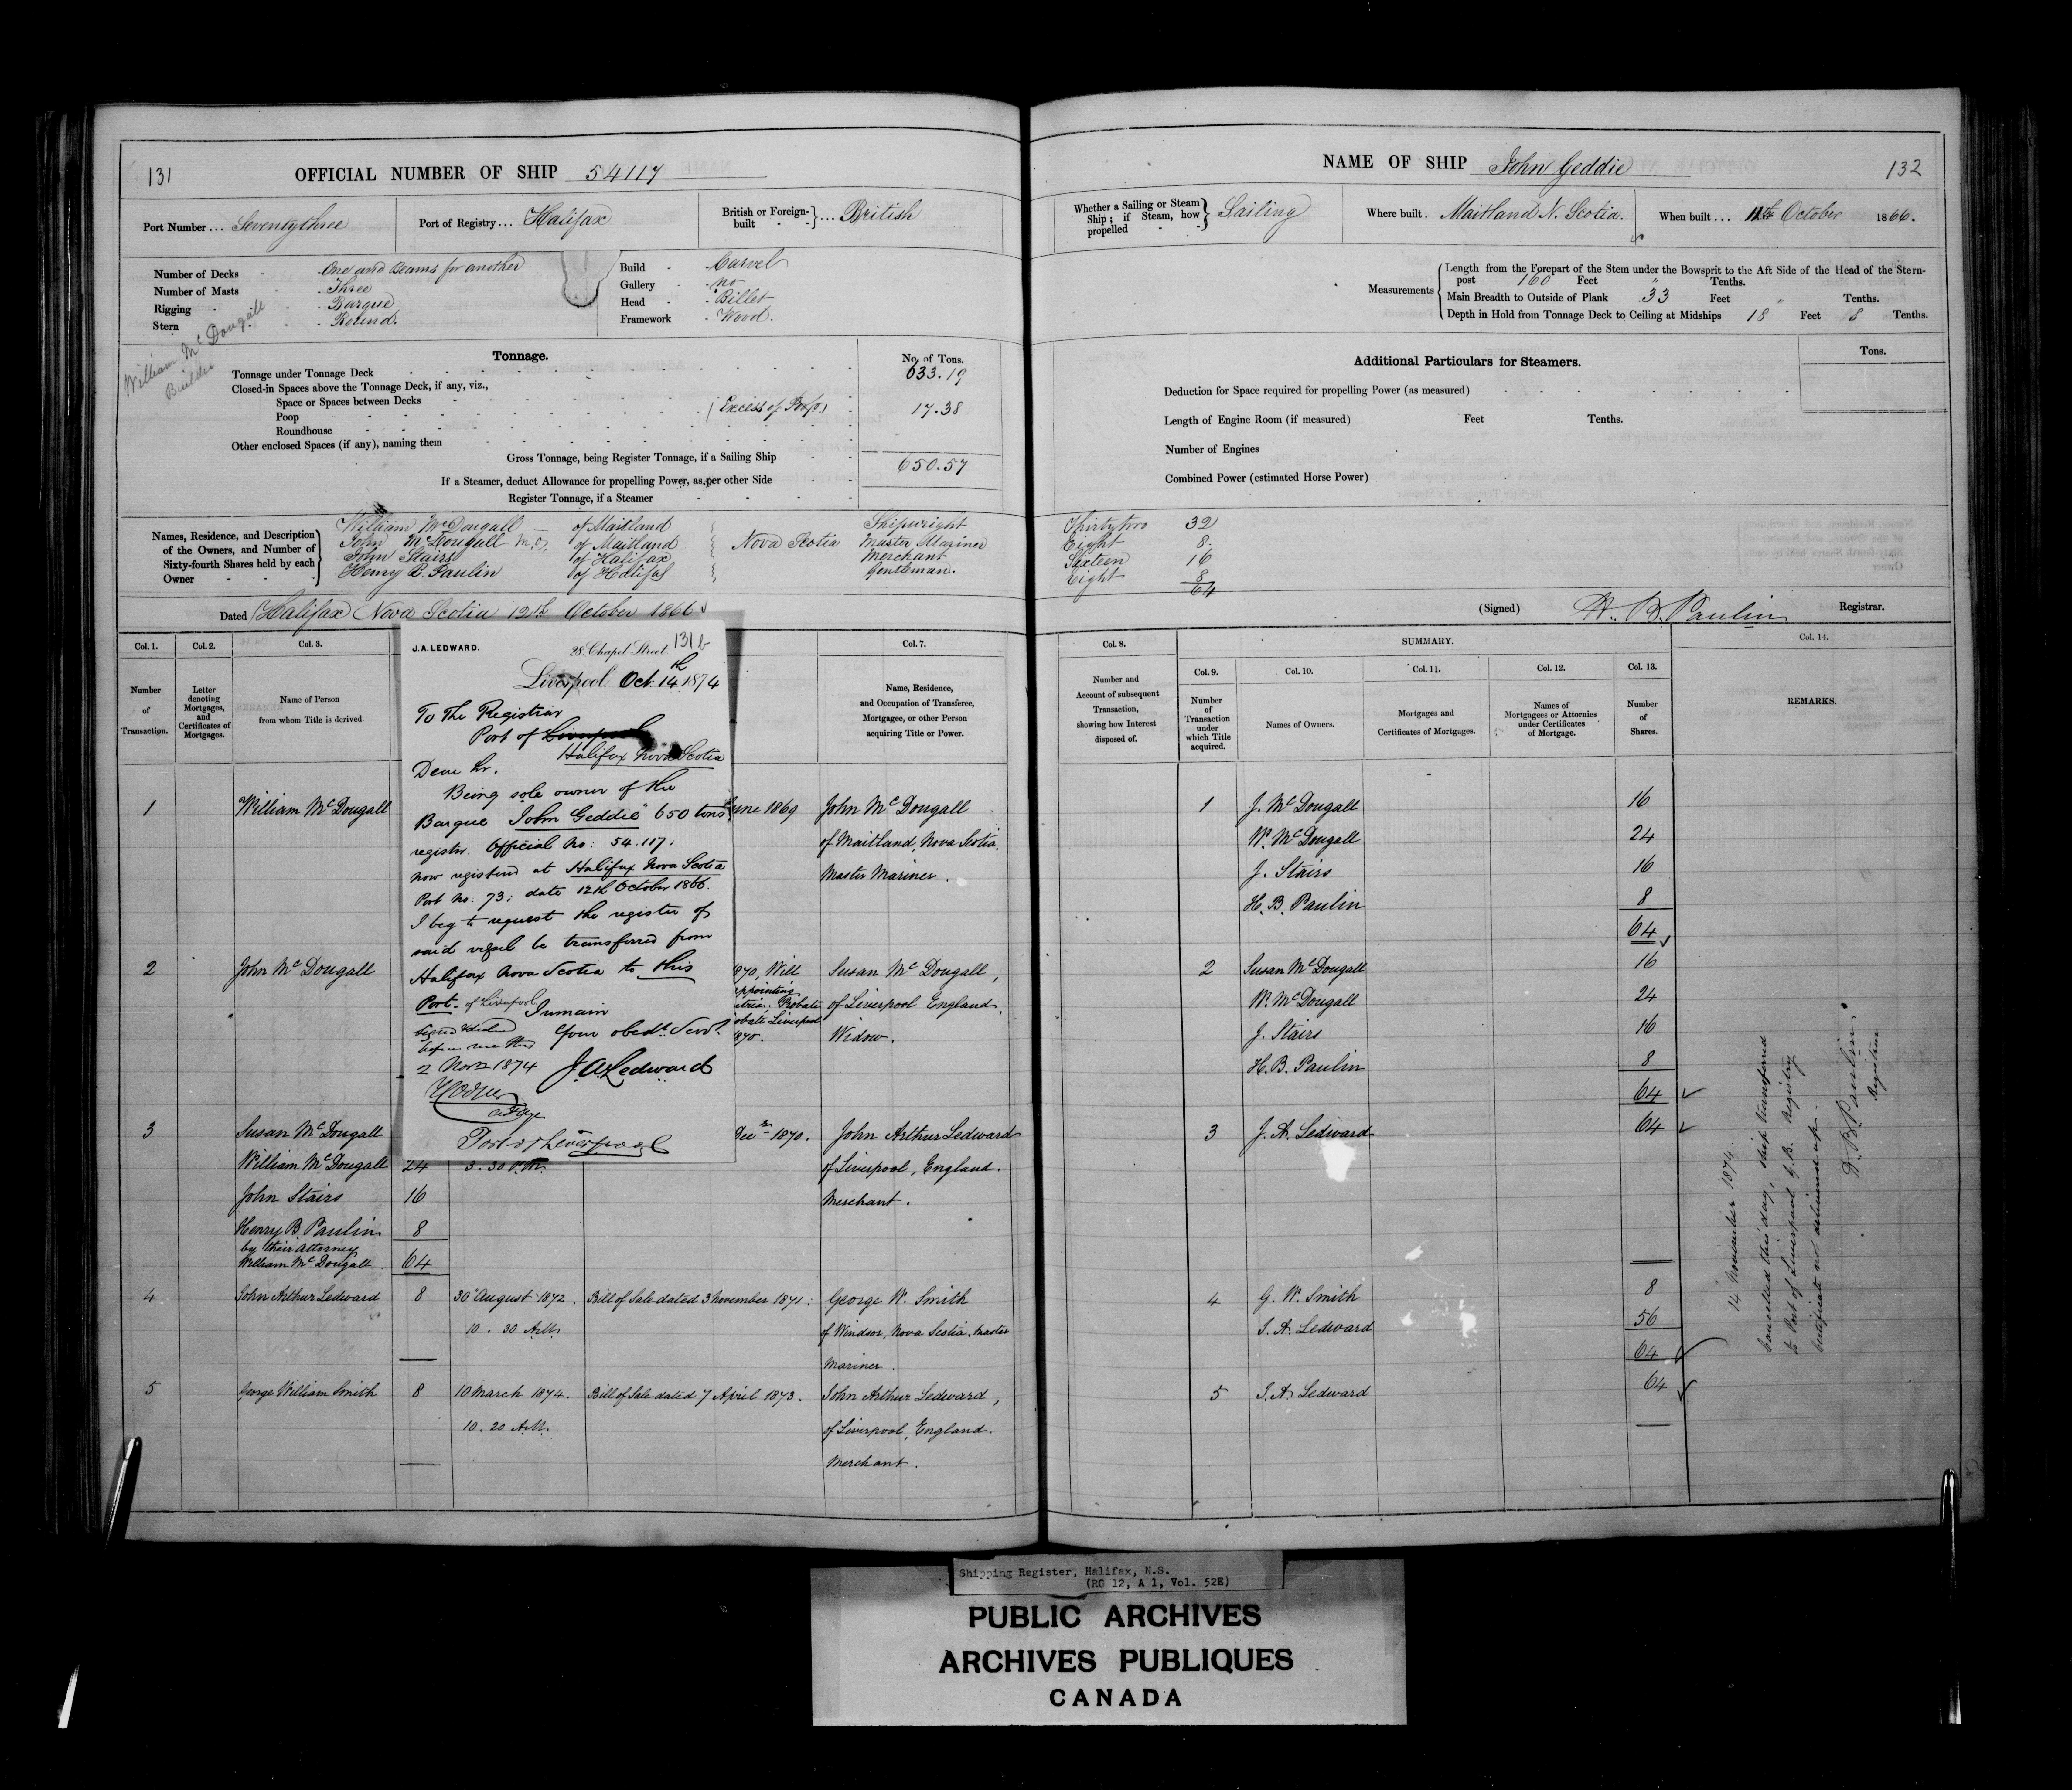 131
OFFICIAL NUMBER OF SHIP 54117
Port Number ... Seventythree
Port of Registry ... Halifax
British or Foreign-built } ... British
Number of Decks - One and Beams for another
Number of Masts - Three
Rigging - Barque
Stern - Round.
Build - Carvel
Gallery - no
Head - Billet
Framework - Wood.
William McDougall
Builder
Tonnage.
No. of Tons.
Tonnage under Tonnage Deck 633.19
Closed-in Spaces above the Tonnage Deck, if any, viz.,
Space or Spaces between Decks
Poop (Excess of Poop) 17.38
Roundhouse
Other enclosed Spaces (if any), naming them
Gross Tonnage, being Register Tonnage, if a Sailing Ship 650.57
If a Steamer, deduct Allowance for propelling Power, as per other Side
Register Tonnage, if a Steamer
Names, Residence, and Description of the Owners, and Number of Sixty-fourth Shares held by each Owner
William McDougall - of Maitland Shipwright
John McDougall M.O. of Maitland Nova Scotia Master Mariner
John Stairs of Halifax Merchant
Henry B. Paulin of Halifax Gentleman.
Dated Halifax Nova Scotia 12th October 1866
Col. 1. Col. 2. Col. 3. Col. 7.
Number of Transaction.
Letter denoting Mortgages, and Certificates of Mortgages.
Name of Person from whom Title is derived.
Name, Residence, and Occupation of Transferee, Mortgagee, or other Person acquiring Title or Power.
1 William McDougall June 1869 John McDougall
of Maitland, Nova Scotia.
Master Mariner.
2 John McDougall 1870, Will Susan McDougall,
appointing
Probate of Liverpool England.
Liverpool
1870. Widow.
3 Susan McDougall Dec 1870. John Arthur Ledward
William McDougall 24 3.30 P.M. of Liverpool, England.
John Stairs 16 Merchant.
Henry B. Paulin 8
by their attorney
William McDougall 64
4 John Arthur Ledward 8 30 August 1872. Bill of Sale dated 3 November 1871: George W. Smith
10.30 A.M. of Windsor, Nova Scotia, Master
Mariner.
5 George William Smith 8 10 March 1874. Bill of Sale dated 7 April 1873. John Arthur Ledward,
10.20 A.M. of Liverpool, England.
Merchant.
J. A. LEDWARD.
28. Chapel Street 131b
Liverpool Oct. 14th 1874
To The Registrar
Port of Liverpool
Halifax Nova Scotia
Dear Sir.
Being sole owner of the
Barque "John Geddie" 650 tons
register. Official No: 54.117:
now registered at Halifax Nova Scotia
Port No: 73: date 12th October 1866.
I beg to request the register of
said vessel be transferred from
Halifax Nova Scotia to this
Port - of Liverpool
I remain
Signed & declared Your obedt. Servt.
before me this
2 Novr 1874 J. A. Ledward
Port of Liverpool
NAME OF SHIP John Geddie 132
Whether a Sailing or Steam Ship; if Steam, how propelled } Sailing
Where built. Maitland N. Scotia.
When built ... 11th October 1866.
Measurements
Length from the Forepart of the Stem under the Bowsprit to the Aft Side of the Head of the Stern-
post 160 Feet " Tenths.
Main Breadth to Outside of Plank 33 Feet " Tenths.
Depth in Hold from Tonnage Deck to Ceiling at Midships 18 Feet 8 Tenths.
Additional Particulars for Steamers.
Tons.
Deduction for Space required for propelling Power (as measured)
Length of Engine Room (if measured) Feet Tenths.
Number of Engines
Combined Power (estimated Horse Power)
Thirtytwo 32
Eight 8
Sixteen 16
Eight 8
64
(Signed) H. B. Paulin Registrar.
Col. 8. SUMMARY. Col. 14.
Col. 9. Col. 10. Col. 11. Col. 12. Col. 13.
Number and Account of subsequent Transaction, showing how Interest disposed of.
Number of Transaction under which Title acquired.
Names of Owners.
Mortgages and Certificates of Mortgages.
Names of Mortgagees or Attornies under Certificates of Mortgage.
Number of Shares.
REMARKS.
1 J. McDougall 16
W. McDougall 24
J. Stairs 16
H. B. Paulin 8
64
2 Susan McDougall 16
W. McDougall 24
J. Stairs 16
H. B. Paulin 8
64
3 J. A. Ledward 64
4 G. W. Smith 8
J. A. Ledward 56
64
5 J. A. Ledward 64
14 November 1874.
Cancelled this day, ship transferred
to Port of Liverpool G.B. Registry
Certificate not delivered up.
H. B. Paulin
Registrar
Shipping Register, Halifax, N.S.
(RG 12, A 1, Vol. 52E)
PUBLIC ARCHIVES
ARCHIVES PUBLIQUES
CANADA